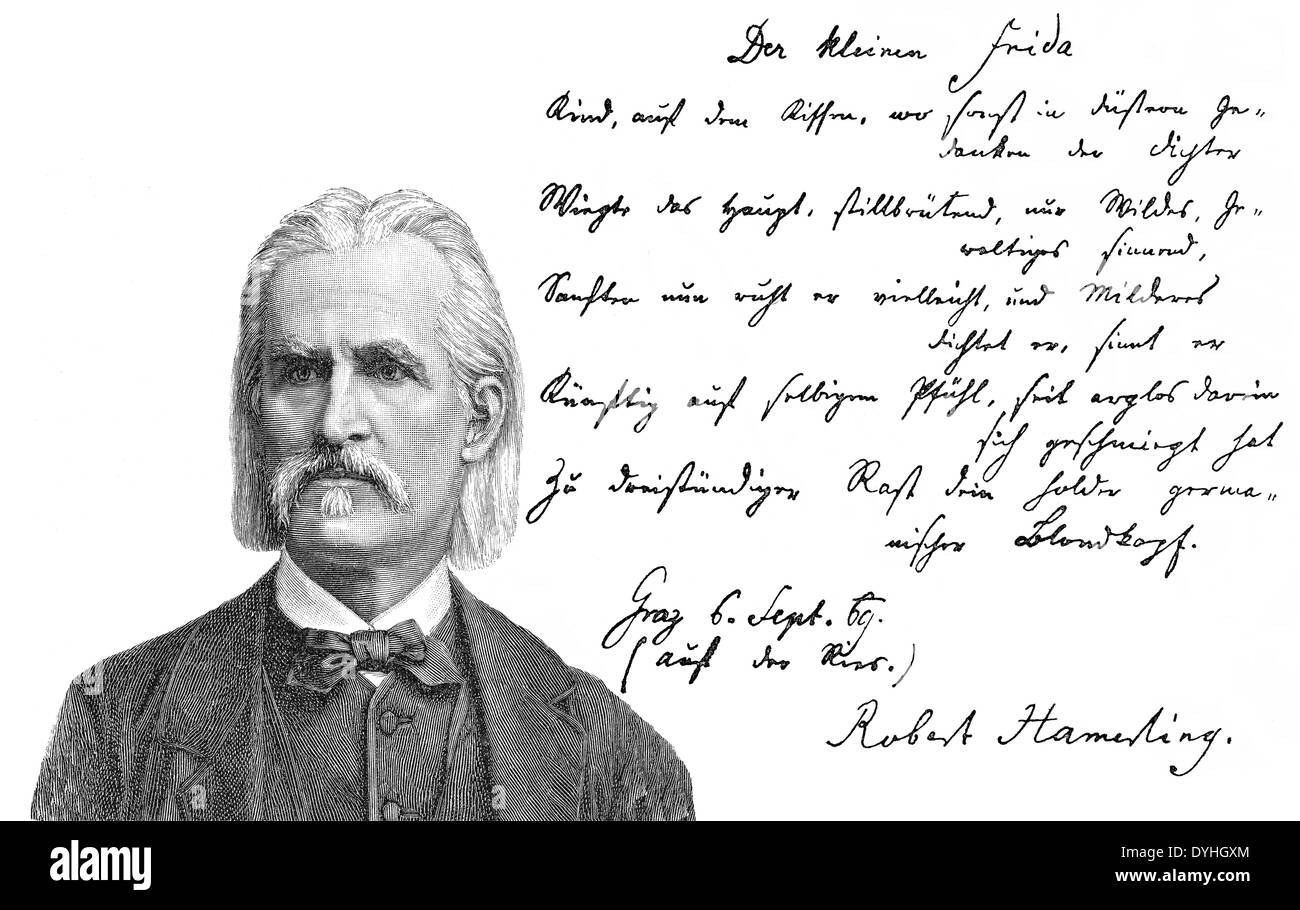 Der kleinen Frida
Kind, auf dem Kissen, wo sonst in düstern Ge-
danken der Dichter
Wiegte das Haupt, stillbrütend, nur Wildes, Ge-
waltiges sinnend,
Sanfter nun ruht er vielleicht, und Milderes
dichtet er, sinnt er
Künftig auf selbigem Pfühl, seit arglos darein
sich geschmiegt hat
Zu dreistündiger Rast dein holder germa-
nischer Blondkopf.
Graz 6. Sept. 69.
(auf der Ries.)
Robert Hamerling.
a
a
a
a
a
alamy
Image ID: DYHGXM
www.alamy.com